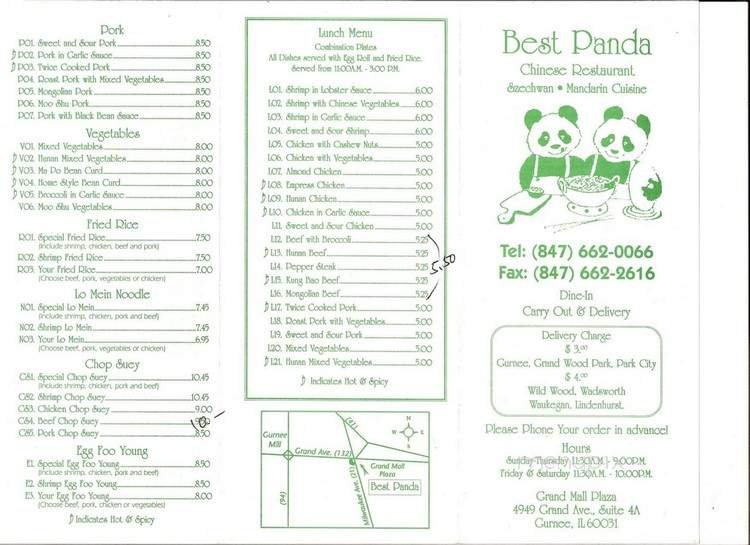 Pork
P01. Sweet and Sour Pork 8.50
P02. Pork in Garlic Sauce 8.50
P03. Twice Cooked Pork 8.50
P04. Roast Pork with Mixed Vegetables 8.50
P05. Mongolian Pork 8.50
P06. Moo Shu Pork 8.50
P07. Pork with Black Bean Sauce 8.50
Vegetables
V01. Mixed Vegetables 8.00
V02. Hunan Mixed Vegetables 8.00
V03. Ma Po Bean Curd 8.00
V04. Home Style Bean Curd 8.00
V05. Broccoli in Garlic Sauce 8.00
V06. Moo Shu Vegetables 8.00
Fried Rice
R01. Special Fried Rice 7.50
(Include shrimp, chicken, beef and pork)
R02. Shrimp Fried Rice 7.50
R03. Your Fried Rice 7.00
(Choose beef, pork, vegetables or chicken)
Lo Mein Noodle
N01. Special Lo Mein 7.45
(Include shrimp, chicken, pork and beef)
N02. Shrimp Lo Mein 7.45
N03. Your Lo Mein 6.95
(Choose beef, pork, vegetables or chicken)
Chop Suey
CS1. Special Chop Suey 10.45
(Include shrimp, chicken, pork and beef)
CS2. Shrimp Chop Suey 10.45
CS3. Chicken Chop Suey 9.00
CS4. Beef Chop Suey
CS5. Pork Chop Suey 8.50
Egg Foo Young
E1. Special Egg Foo Young 8.50
(Include shrimp, chicken, pork and beef)
E2. Shrimp Egg Foo Young 8.50
E3. Your Egg Foo Young 8.00
(Choose beef, pork, chicken or vegetables)
Indicates Hot & Spicy
Lunch Menu
Combination Plates
All Dishes served with Egg Roll and Fried Rice.
Served from 11:00A.M. - 3:00 P.M.
L01. Shrimp in Lobster Sauce 6.00
L02. Shrimp with Chinese Vegetables 6.00
L03. Shrimp in Garlic Sauce 6.00
L04. Sweet and Sour Shrimp 6.00
L05. Chicken with Cashew Nuts 5.00
L06. Chicken with Vegetables 5.00
L07. Almond Chicken 5.00
L08. Empress Chicken 5.00
L09. Hunan Chicken 5.00
L10. Chicken in Garlic Sauce 5.00
L11. Sweet and Sour Chicken 5.00
L12. Beef with Broccoli 5.25
L13. Hunan Beef 5.25
L14. Pepper Steak 5.25
5.50
L15. Kung Bao Beef 5.25
L16. Mongolian Beef 5.25
L17. Twice Cooked Pork 5.00
L18. Roast Pork with Vegetables 5.00
L19. Sweet and Sour Pork 5.00
L20. Mixed Vegetables 5.00
L21. Hunan Mixed Vegetables 5.00
Indicates Hot & Spicy
N
W E
S
(21)
Gurnee
Mill
Grand Ave. (132)
Grand Mall
Plaza
Best Panda
Milwaukee Ave. (21)
(94)
Best Panda
Chinese Restaurant
Szechwan • Mandarin Cuisine
Tel: (847) 662-0066
Fax: (847) 662-2616
Dine-In
Carry Out & Delivery
Delivery Charge
$ 3.00
Gurnee, Grand Wood Park, Park City
$ 4.00
Wild Wood, Wadsworth
Waukegan, Lindenhurst.
Please Phone Your order in advance!
Hours
Sunday-Thursday 11:30A.M. - 9:00P.M.
Friday & Saturday 11:30A.M. - 10:00P.M.
Grand Mall Plaza
4949 Grand Ave., Suite 4A
Gurnee, IL 60031